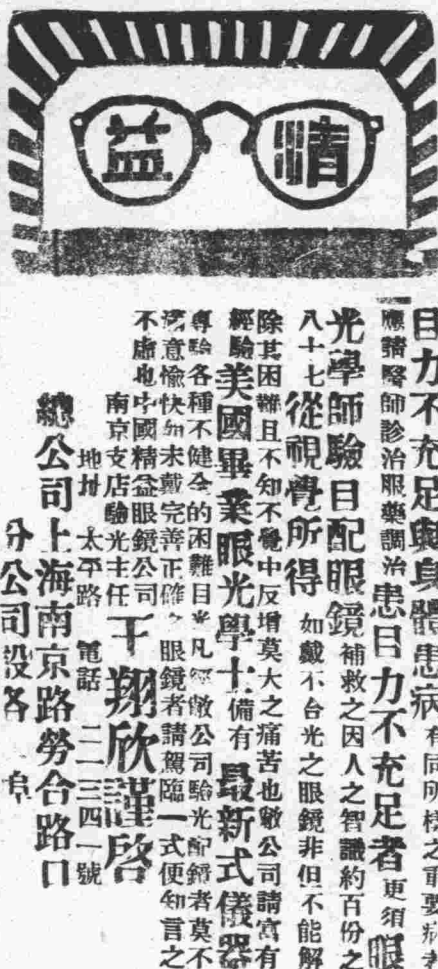 精益
目力不充足與身體患病有同所樣之重要病者
應請醫師診治服藥調治患目力不充足者更須眼
光學師驗目配眼鏡補救之因人之智識約百份之
八十七從視覺所得如戴不合光之眼鏡非但不能解
除其困難且不知不覺中反增莫大之痛苦也敝公司請富有
經驗美國畢業眼光學士備有最新式儀器
專驗各種不健全的困難目光凡經敝公司驗光配鏡者莫不
滿意愉快如未戴完善正確之眼鏡者請駕臨一式便知言之
不虛也中國精益眼鏡公司
南京支店驗光主任王翔欣謹啓
地址 太平路 電話 二二三四一號
總公司上海南京路勞合路口
分公司設各埠